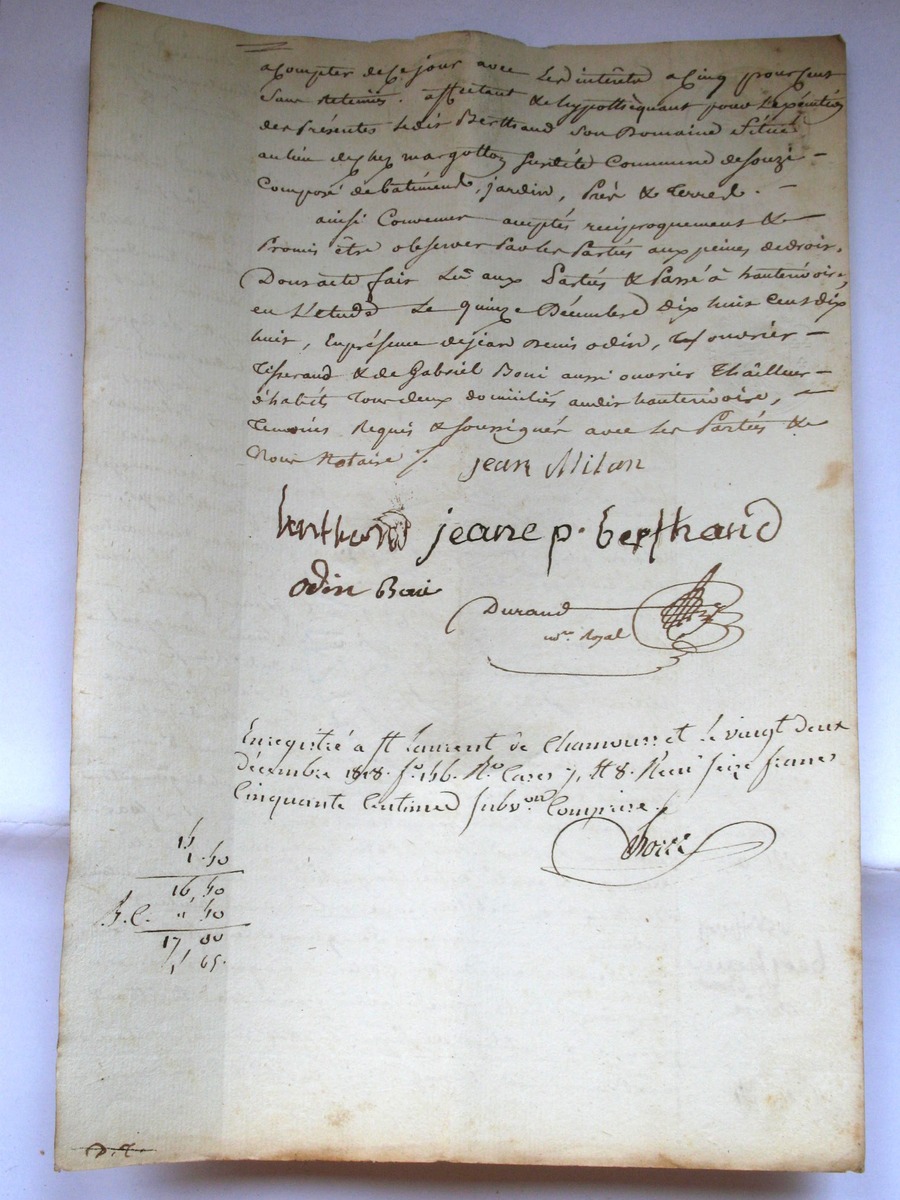 a Compter de ce jour avec les intérêts a Cinq pour Cent
Sans retenues. affectant & hypothéquant pour l'exécution
des Présentes ledit Berthand Son Domaine Situé
au lieu de chez margotton Susdite Commune de Souzi –
Composé de batiments, jardin, Prés & terres. –
ainsi Convenu acceptés reciproquement &
Promis être observer Par les Parties aux peines de droit.
Dont acte fait Lû aux Parties & Passé à hauterivoire,
en L'etude Le quinze Décembre dix huit Cent dix
huit, En présence de jean Denis odin, ouvrier –
Tisserand & de Gabriel Boui aussi ouvrier Thailleur –
d'habits Tous deux domiciliés audit hauterivoire, –
Temoins Requis & soussignés avec les Parties &
Nous Notaire /.
jean Milan
berthand jeane p. berthand
odin Boui
Durand
nore. Royal
Enregistré a St Laurent de Chamousset le vingt deux
décembre 1818. fo. 166. Ro. Cases 7, & 8. Recu Seize francs
Cinquante Centimes Subvon. Comprise.
15
1.50
16,50
F.C. " 50
17,00
1, 65.